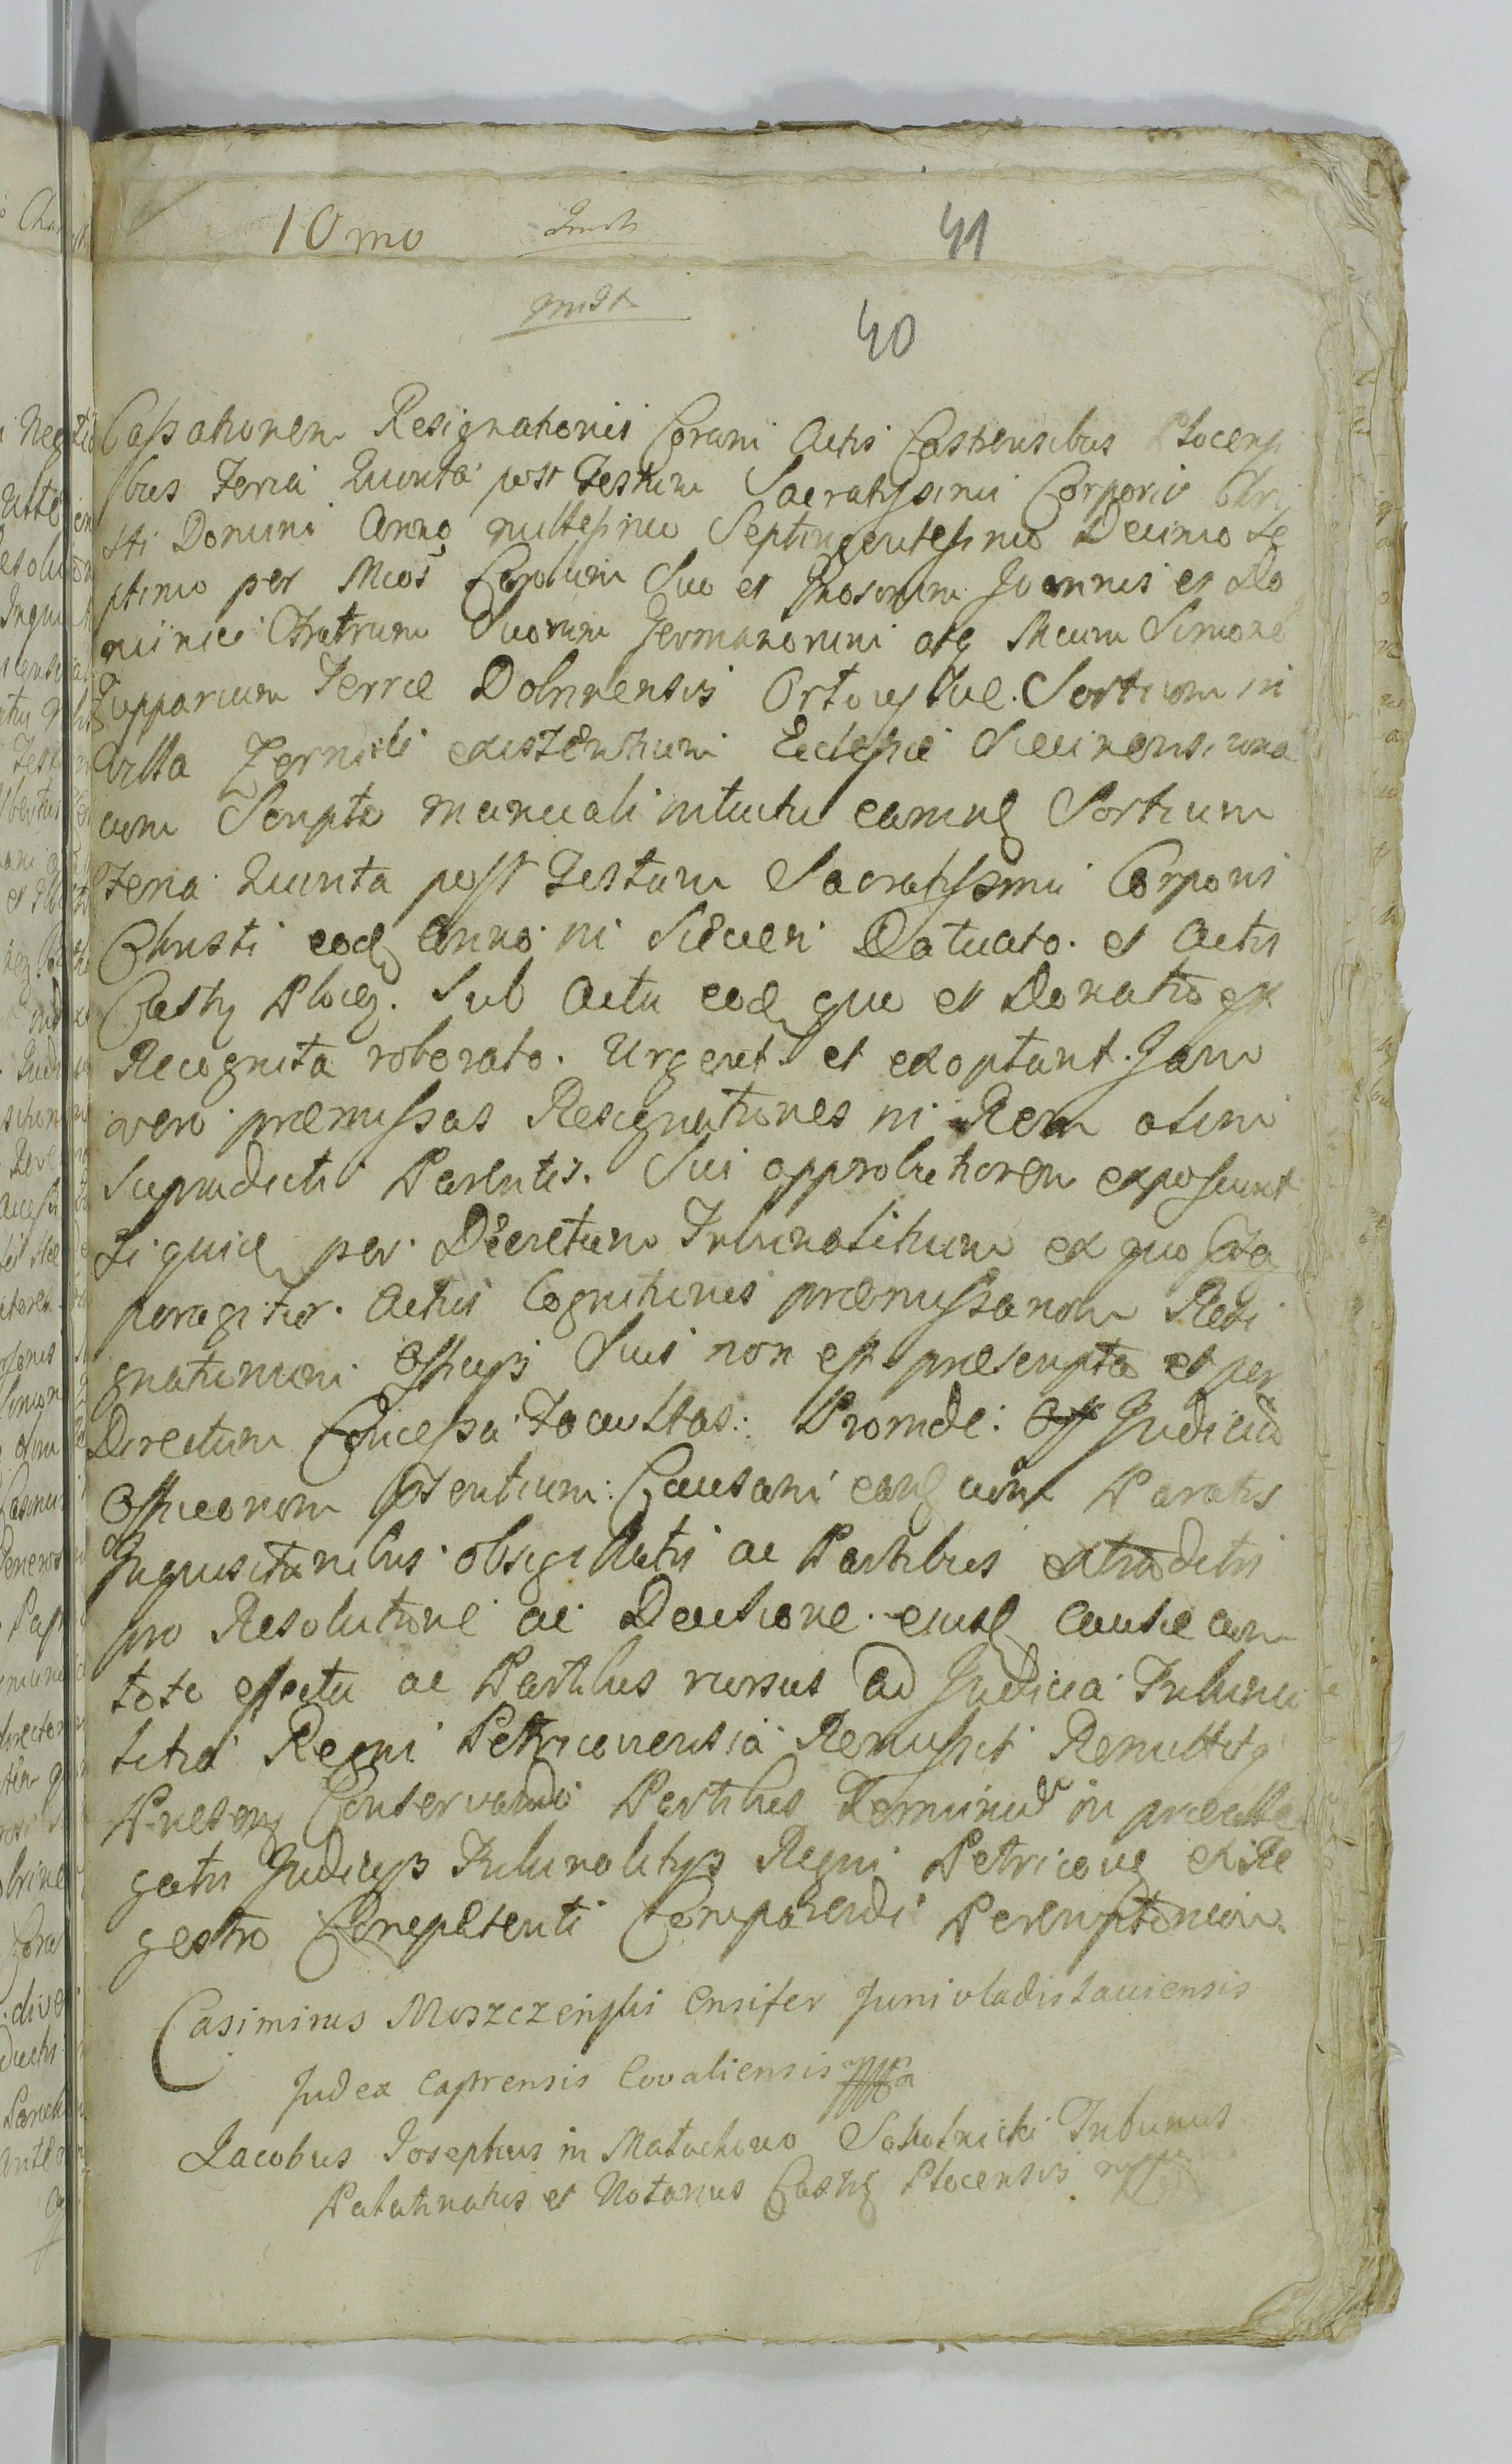 10mo
41
40
Cassationem Resignationis Coram Actis Castrensibus Plocens
ibus Feria Quinta post Festum Sacratissimi Corporis Chri
sti Domini Anno millesimo Septingentesimo Decimo Se
ptimo per Mcos Suo et Joannis et Do
minici Fratrum Suorum Germanorum atq Mcum Simone
Zupparium Terrae Dobrinensis Sortium in
Villa existentium Ecclesiae una
cum Scripto manuali intuitu earund Sortium
Feria Quinta post Festum Sacratissimi Corporis
Christi eod Anno in Datuato. et Actis
Castr Plocen. Sub Actu eod quo et Donatio est
Recognita roborato. Urgent et exoptant. Jam
vero praemissas Resignationes in Rem olim
Supradicti Parentis. Sui approbationem exposcunt
Siquid per Decretum Tribunalitium ex quo
peragitur. Actus Cognitionis praemissarum Resi
gnationum Officijs Suis non est praescripta et per
Directum Concessa Facultas: Proinde: Judicium
Officiorum Causam eand cum Paratis
Inquisitionibus obsigillatis ac Partibus extraditis
pro Resolutione ac Decisione ejusd Causae cum
toto effectu ac Partibus rursus ad Judicia Tribuna
litia Regni Petricoviensia Remissit Remittitq
Praesens Conservando Partibus Terminum in praealle
gatis Judicijs Tribunalitijs Regni Petricovien ex Re
gestro Competenti Comparendi Peremptorium.
Casimirus Moszczenski Ensifer Junivladislaviensis
Judex Caprensis Covaliensis
Jacobus Josephus in Tribunus
Palatinatus et Notarius Castr Plocensis